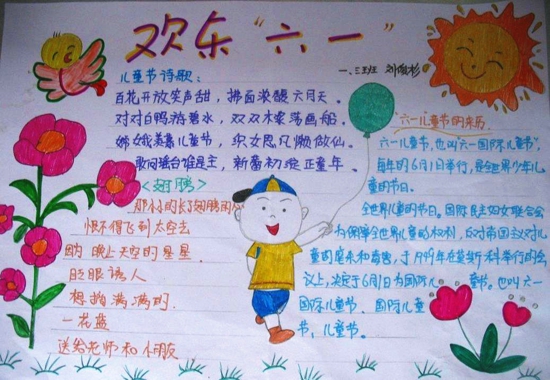 欢乐“六一”
儿童节诗歌：
百花开放笑声甜，拂面浓馥六月天。
对对白鸭游碧水，双双木桨荡画船。
嫦娥羡慕儿童节，织女思凡懒做仙。
敢问瑶台谁是主，新蕾初绽正童年。
<翅膀>
那小小的长了翅膀的
恨不得飞到太空去
晚上天空的星星
眨眼诱人
想摘满满的
一花蓝
送给老师和小朋友
“六一儿童节的来历
六一儿童节，也叫六一国际儿童节”，
每年的6月1日举行，是全世界少年儿
童的节日。
全世界儿童的节日。国际民主妇女联合会
为保障全世界儿童的权利，反对帝国主义对儿
童的虐杀和毒害，于1949年在莫斯科举行的会
议上，决定于6月1日为国际儿童节。也叫六一
国际儿童节、国际儿童
节，儿童节。